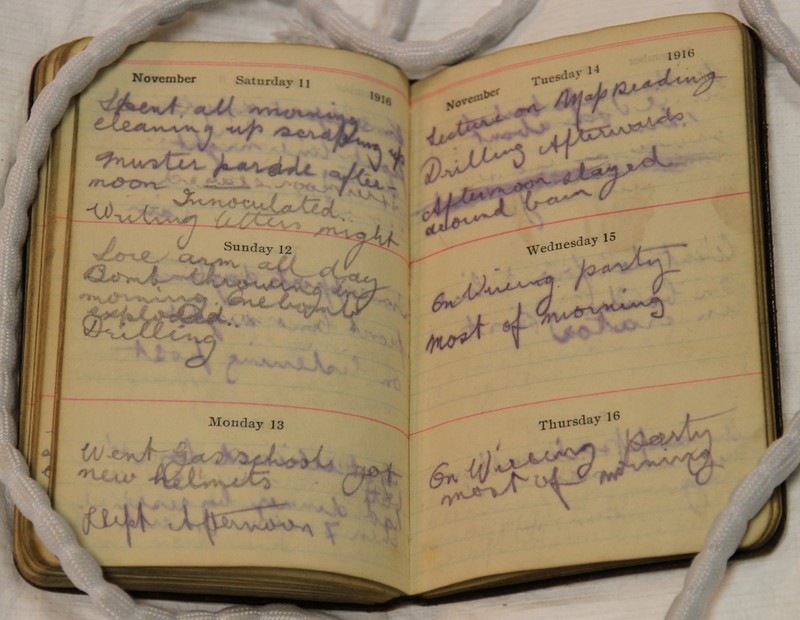 November Saturday 11 1916
Spent all morning
cleaning up scraping up
Muster parade after-
noon Innoculated..
Writing letters night
Sunday 12
Sore arm all day
Bomb throwing in
morning. One bomb
exploded..
Drilling
Monday 13
Went Gas schools got
new helmets
Slept Afternoon
November Tuesday 14 1916
Lecture on Map Reading
Drilling Afterwards.
Afternoon stayed
around barn
Wednesday 15
On Wiring party
most of morning
Thursday 16
On Wireing party
most of morning